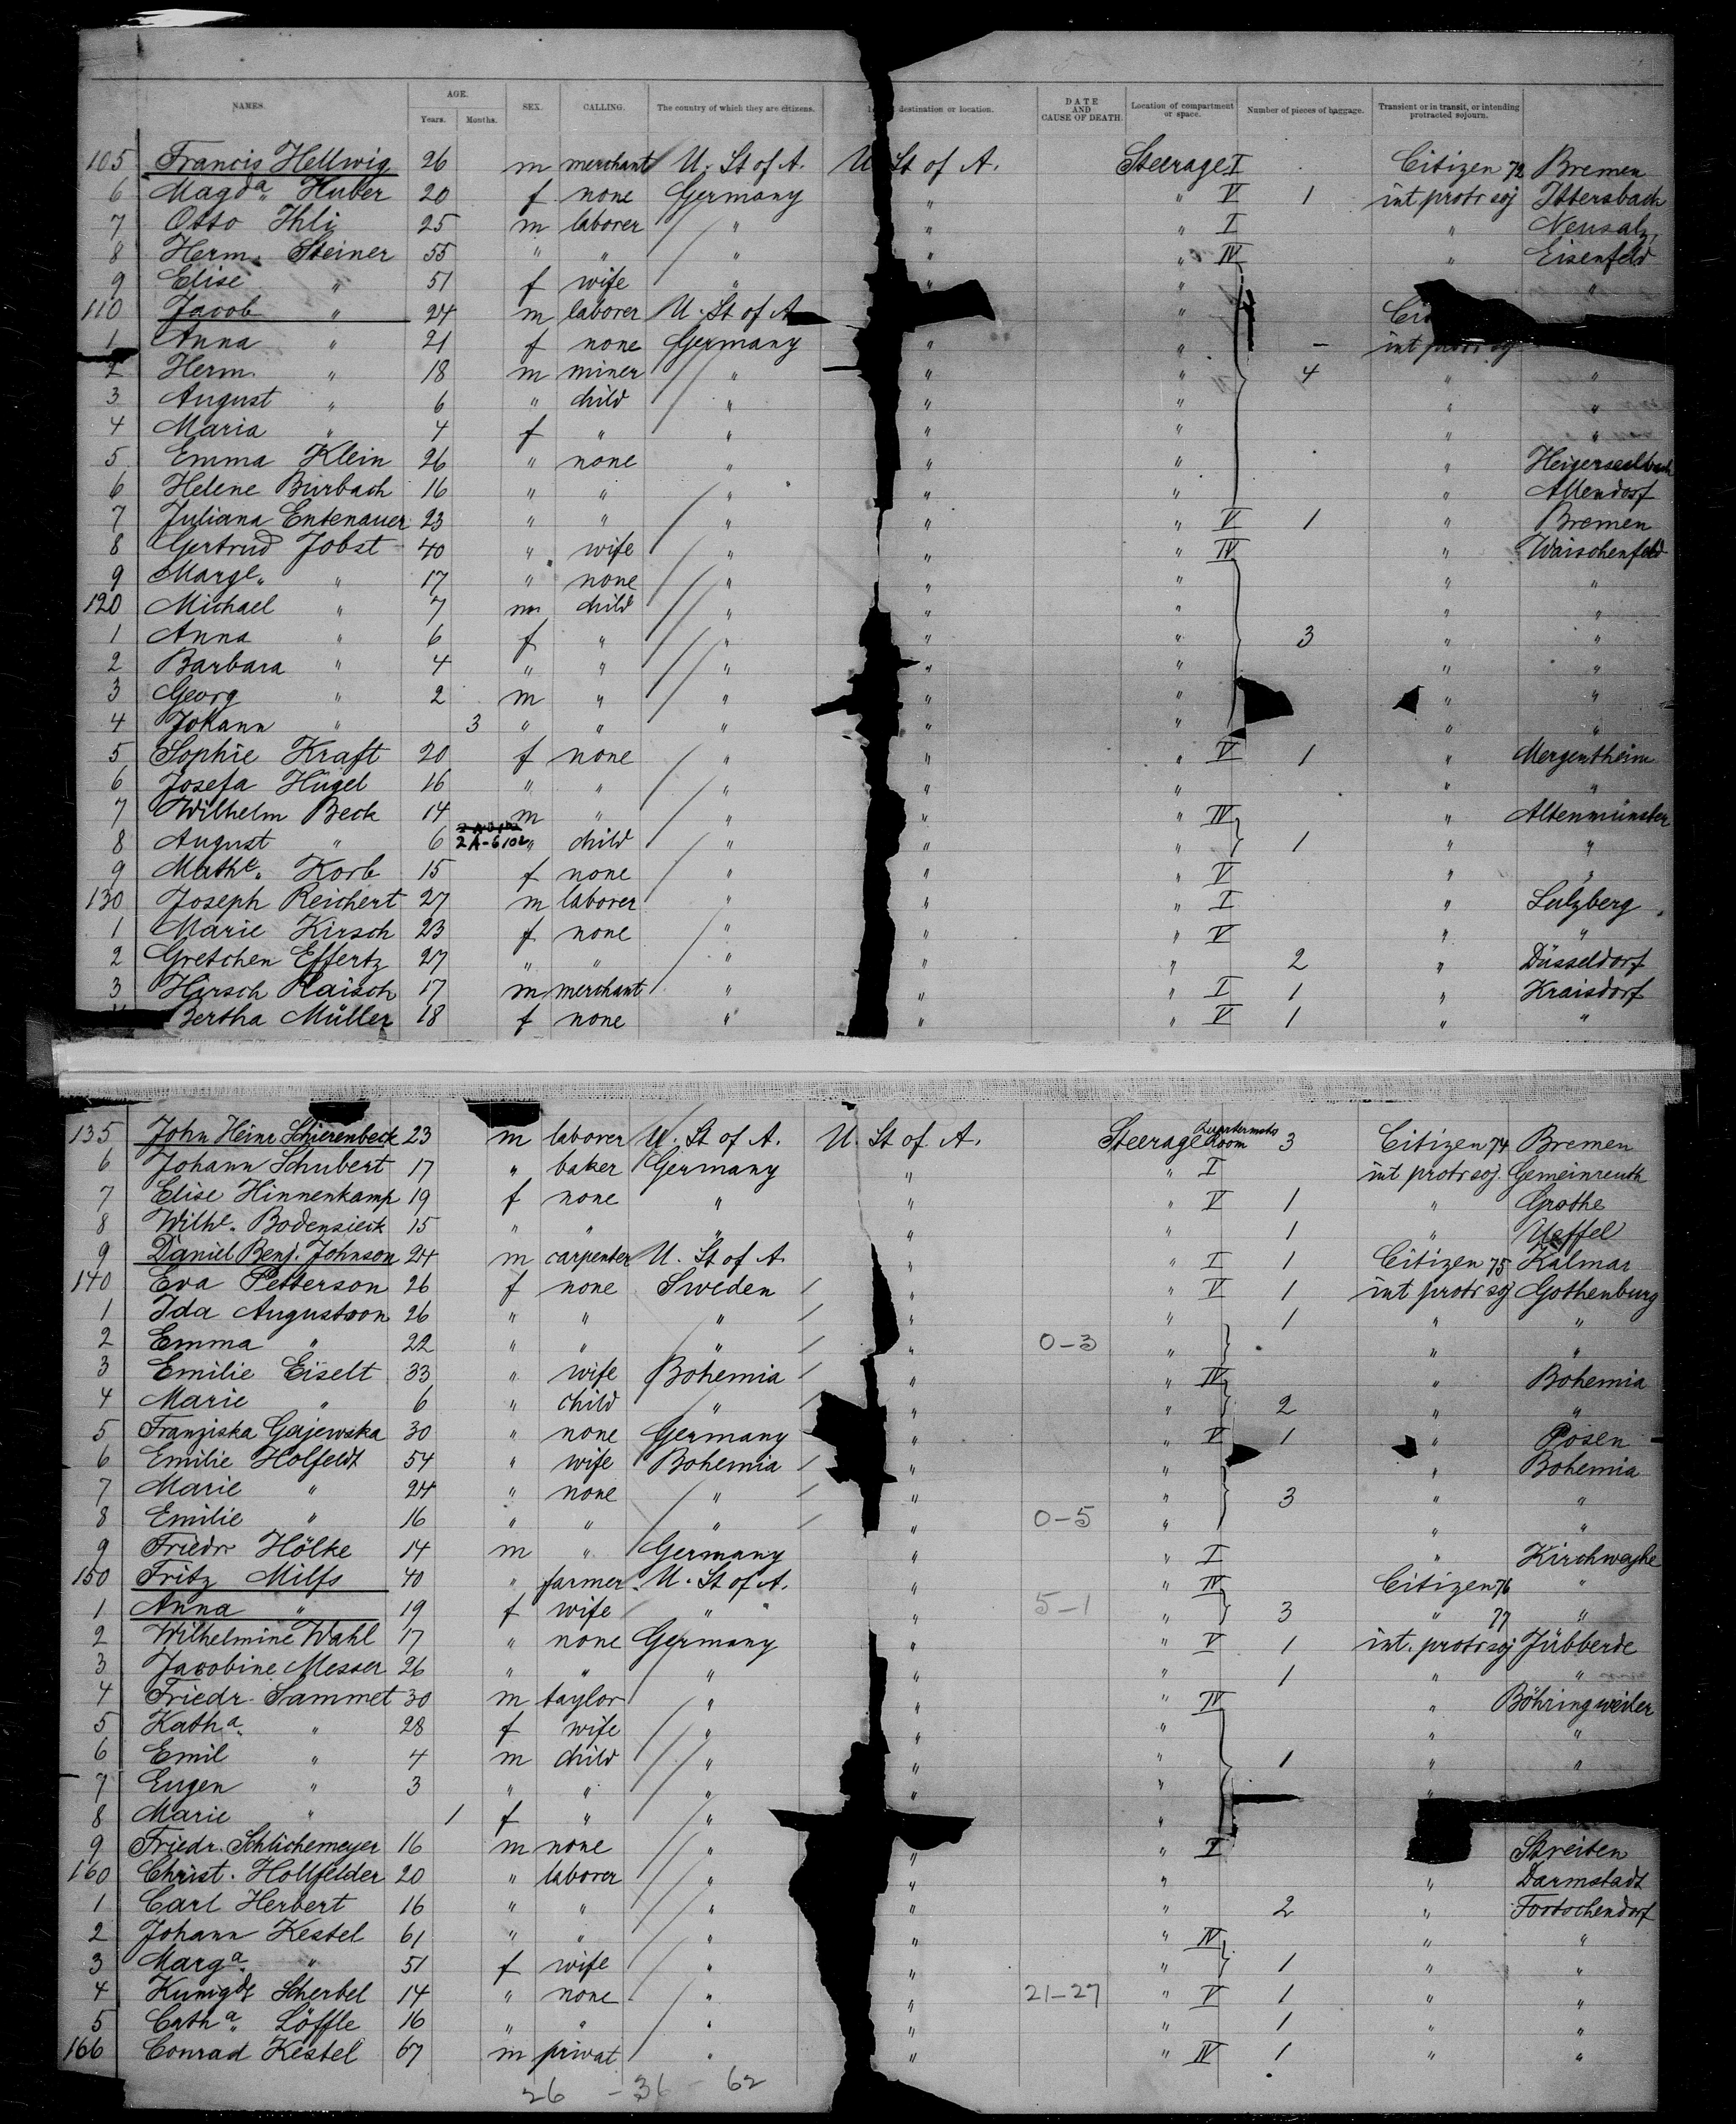 NAMES. AGE. Years. Months. SEX. CALLING. The country of which they are citizens. destination or location. DATE AND CAUSE OF DEATH. Location of compartment or space. Number of pieces of baggage. Transient or in transit, or intending protracted sojourn.
105 Francis Hellwig 26 m merchant U. St of A. U. St of A. Steerage I Citizen 72 Bremen
6 Magda. Huber 20 f none Germany " " V 1 int protr soj Ittersbach
7 Otto Ihli 25 m laborer " " " I " Neusalz
8 Herm. Steiner 55 " " " " " IV " Eisenfeld
9 Elise " 51 f wife " " " "
110 Jacob " 24 m laborer U. St of A "
1 Anna " 21 f none Germany " " — int protr soj
2 Herm. " 18 m miner " " " 4 " "
3 August " 6 " child " " " " "
4 Maria " 4 f " " " " " "
5 Emma Klein 26 " none " " " " Heigerseelbach
6 Helene Burbach 16 " " " " " " Allendorf
7 Juliana Entenauer 23 " " " " " V 1 " Bremen
8 Gertrud Jobst 40 " wife " " " IV " Waischenfeld
9 Marge. " 17 " none " " " " "
120 Michael " 7 m child " " " " "
1 Anna " 6 f " " " " 3 " "
2 Barbara " 4 " " " " " " "
3 Georg " 2 m " " " " " "
4 Johann " 3 " " " " " " "
5 Sophie Kraft 20 f none " " " V 1 " Mergentheim
6 Josefa Hügel 16 " " " " " " "
7 Wilhelm Beck 14 m " " " " IV " Altenmünster
8 August " 6 2A-6102 " child " " " 1 " "
9 Mathe. Korb 15 f none " " " V " "
130 Joseph Reichert 27 m laborer " " " I " Sulzberg
1 Marie Kirsch 23 f none " " " V " "
2 Gretchen Effertz 27 " " " " " 2 " Düsseldorf
3 Hirsch Raisch 17 m merchant " " " I 1 " Kraisdorf
Bertha Müller 18 f none " " " V 1 " "
135 John Heinr Schierenbeck 23 m laborer U. St of A. U. St of A. Steerage Room 3 Citizen 74 Bremen
6 Johann Schubert 17 " baker Germany " " I int protr soj. Gemeinreuth
7 Elise Hinnenkamp 19 f none " " " V 1 " Grothe
8 Wilhe. Bodensieck 15 " " " " " 1 " Ueffel
9 Daniel Benj. Johnson 24 m carpenter U. St of A. " " I 1 Citizen 75 Kalmar
140 Eva Petterson 26 f none Sweden " " V 1 int protr soj Gothenburg
1 Ida Augustson 26 " " " " " 1 " "
2 Emma " 22 " " " " 0-3 " " "
3 Emilie Eiselt 33 " wife Bohemia " " IV " Bohemia
4 Marie " 6 " child " " " 2 " "
5 Franziska Gajewska 30 " none Germany " " V 1 " Posen
6 Emilie Holfeldt 54 " wife Bohemia " " " Bohemia
7 Marie " 24 " none " " " 3 " "
8 Emilie " 16 " " " " 0-5 " " "
9 Friedr Hölke 14 m " Germany " " I " Kirchweyhe
150 Fritz Milfs 40 " farmer U. St of A. " " IV Citizen 76 "
1 Anna " 19 f wife " " 5-1 " 3 " 77 "
2 Wilhelmine Wahl 17 " none Germany " " V 1 int. protr soj Jübberde
3 Jacobine Messer 26 " " " " " 1 " "
4 Friedr. Sammet 30 m taylor " " " IV " Böhringweiler
5 Katha. " 28 f wife " " " " "
6 Emil " 4 m child " " " 1 " "
7 Eugen " 3 " " " " " " "
8 Marie " 1 f " " " "
9 Friedr. Schlichemeyer 16 m none " " " I Streiten
160 Christ. Hollfelder 20 " laborer " " " " Darmstadt
1 Carl Herbert 16 " " " " " 2 " Footschendorf
2 Johann Kestel 61 " " " " " IV " "
3 Marga. " 51 f wife " " " 1 " "
4 Kunigde Scherbel 14 " none " " 21-27 " V 1 " "
5 Catha. Löffle 16 " " " " " 1 " "
166 Conrad Kestel 67 m privat " " " IV 1 " "
26 - 36 - 62